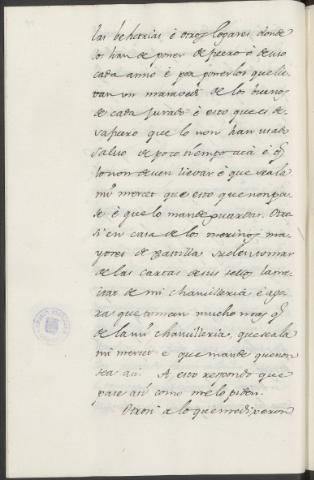 las behetrias é otros logares donde
los han de poner de fuero é de uso
cada anno é por ponerlos que lie
van un maravedi de los buenos
de cada Jurado é esto que es de
safuero que lo non han usado
salvo de poco tiempo acá é q̃
lo non deven levar é que sea la
mi merced que esto que non pa
se é que lo mande guardar. Otro
si en casa de los merinos ma
yores de Castilla suelen tomar
de las cartas de sus sellos la me
itat de mi chancilleria é ago
ra que toman mucho mas q̃
de la mi chancilleria, que sea la
mi merced é que mande que non
sea asi. A esto respondo que
pase asi como me lo piden.
Otrosi a lo que me dixieron